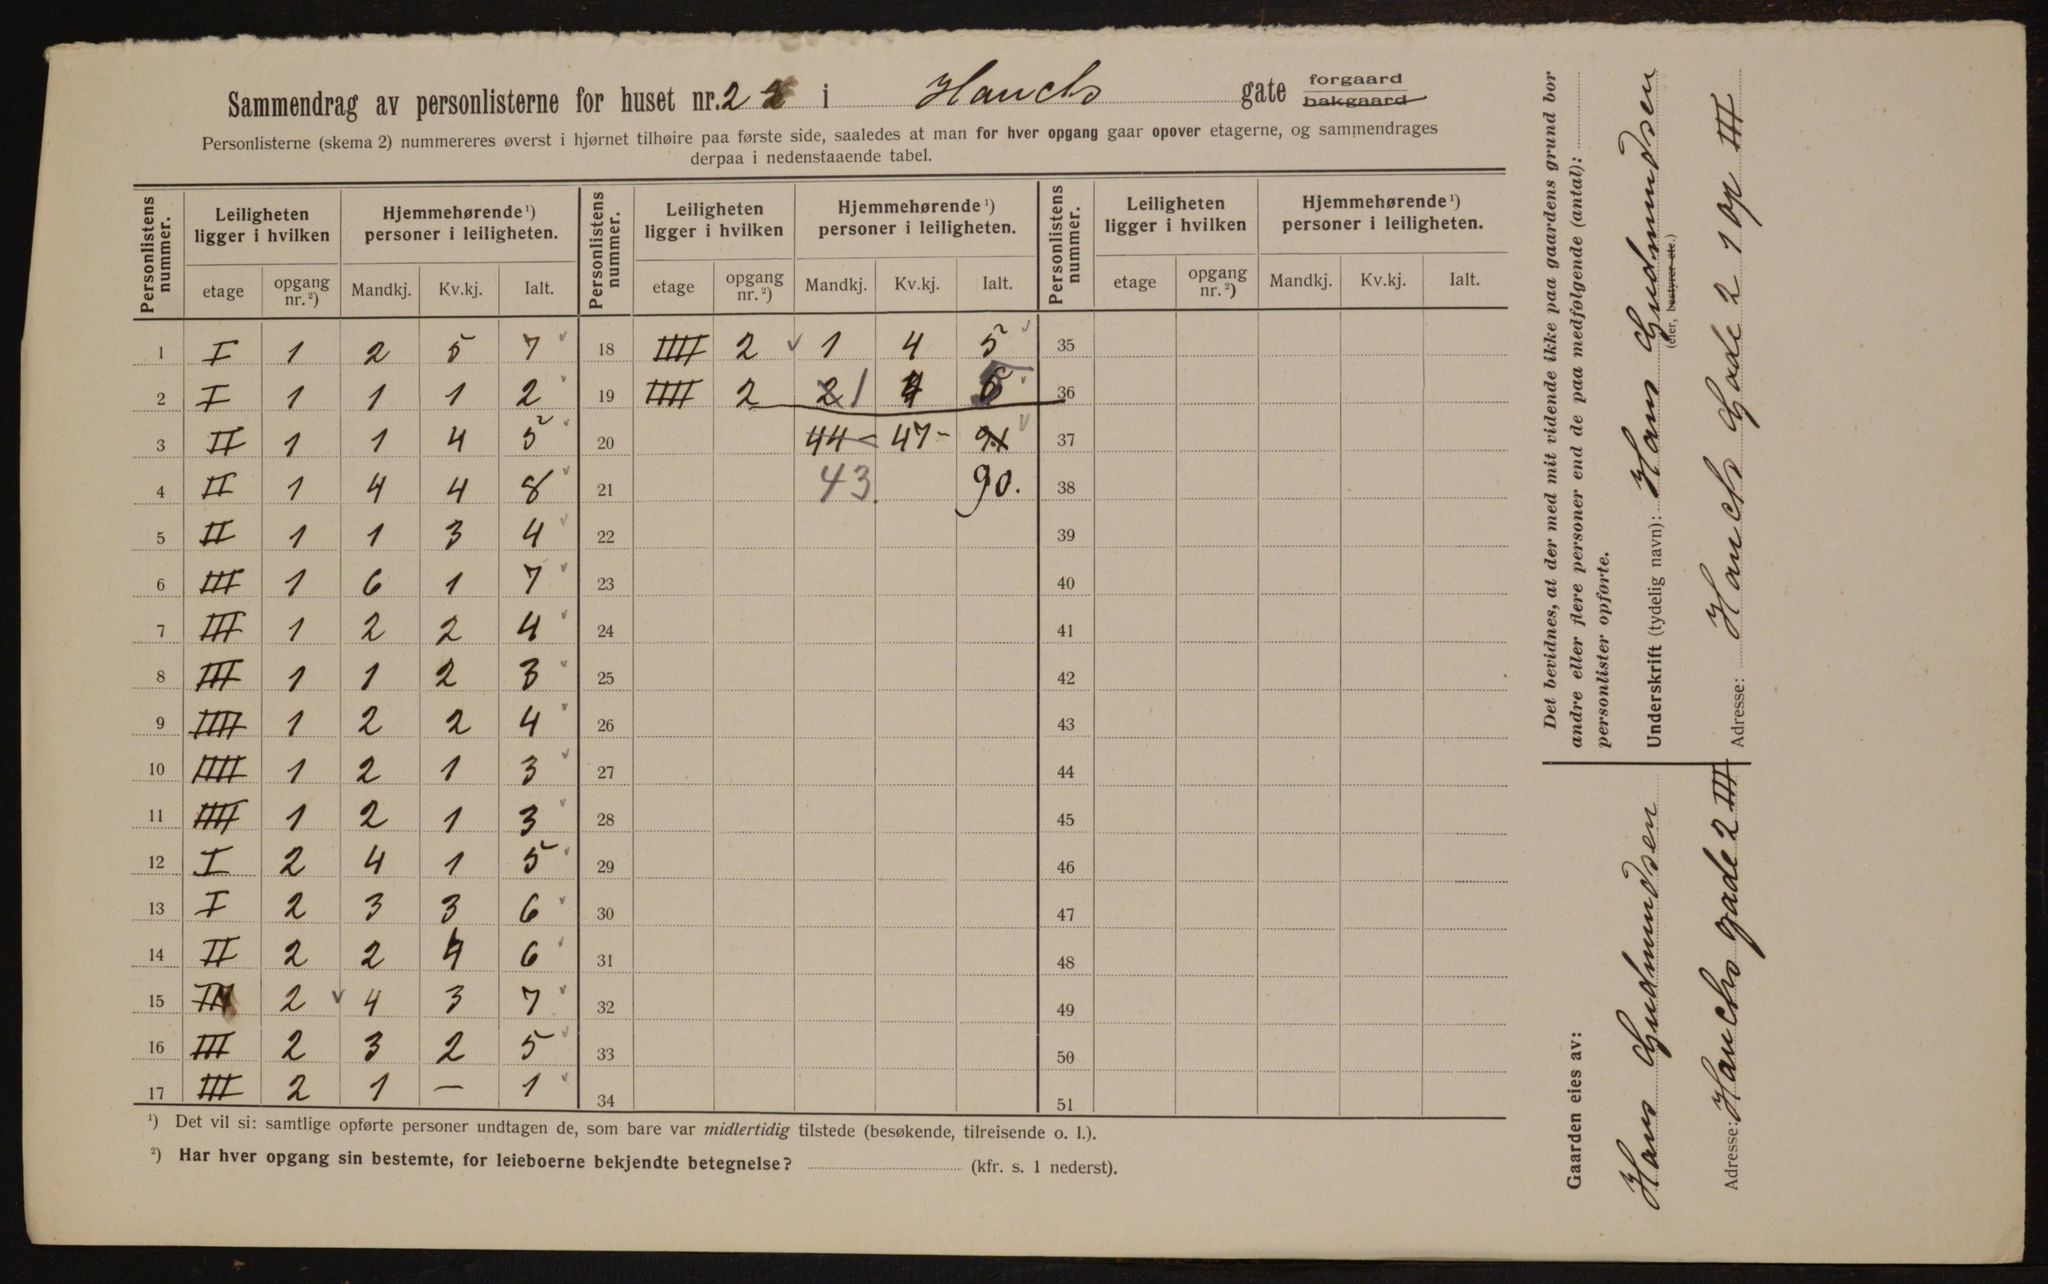 Sammendrag av personlisterne for huset nr. 2 i Hauchs gate forgaard
bakgaard
Personlisterne (skema 2) nummereres øverst i hjørnet tilhøire paa første side, saaledes at man for hver opgang gaar opover etagerne, og sammendrages
derpaa i nedenstaaende tabel.
Personlistens nummer. Leiligheten ligger i hvilken Hjemmehørende ¹) personer i leiligheten. Personlistens nummer. Leiligheten ligger i hvilken Hjemmehørende ¹) personer i leiligheten. Personlistens nummer. Leiligheten ligger i hvilken Hjemmehørende ¹) personer i leiligheten.
etage opgang nr. ²) Mandkj. Kv.kj. Ialt. etage opgang nr. ²) Mandkj. Kv.kj. Ialt. etage opgang nr. ²) Mandkj. Kv.kj. Ialt.
1 I 1 2 5 7 18 IIII 2 1 4 5 35
2 I 1 1 1 2 19 IIII 2 2 1 4 36
3 II 1 1 4 5 20 44 47 91 37
4 II 1 4 4 8 21 43. 90. 38
5 II 1 1 3 4 22 39
6 III 1 6 1 7 23 40
7 III 1 2 2 4 24 41
8 III 1 1 2 3 25 42
9 IIII 1 2 2 4 26 43
10 IIII 1 2 1 3 27 44
11 IIII 1 2 1 3 28 45
12 I 2 4 1 5 29 46
13 I 2 3 3 6 30 47
14 II 2 2 4 6 31 48
15 2 4 3 7 32 49
16 III 2 3 2 5 33 50
17 III 2 1 — 1 34 51
¹) Det vil si: samtlige opførte personer undtagen de, som bare var midlertidig tilstede (besøkende, tilreisende o. l.).
²) Har hver opgang sin bestemte, for leieboerne bekjendte betegnelse? (kfr. s. 1 nederst).
Det bevidnes, at der med mit vidende ikke paa gaardens grund bor
andre eller flere personer end de paa medfølgende (antal):
personlister opførte.
Underskrift (tydelig navn): Hans Gudmundsen
(eier, bestyrer etc.)
Adresse: Hauchs Gade 2 1 op III
Gaarden eies av:
Hans Gudmundsen
Adresse: Hauchs gade 2 III